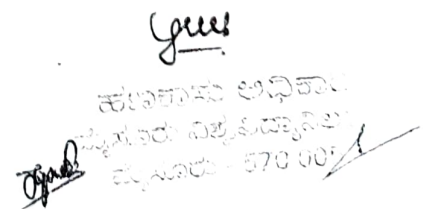 ಹಣಕಾಸು ಅಧಿಕಾರಿ
ಮೈಸೂರು ವಿಶ್ವವಿದ್ಯಾನಿಲಯ
ಮೈಸೂರು - 570 005